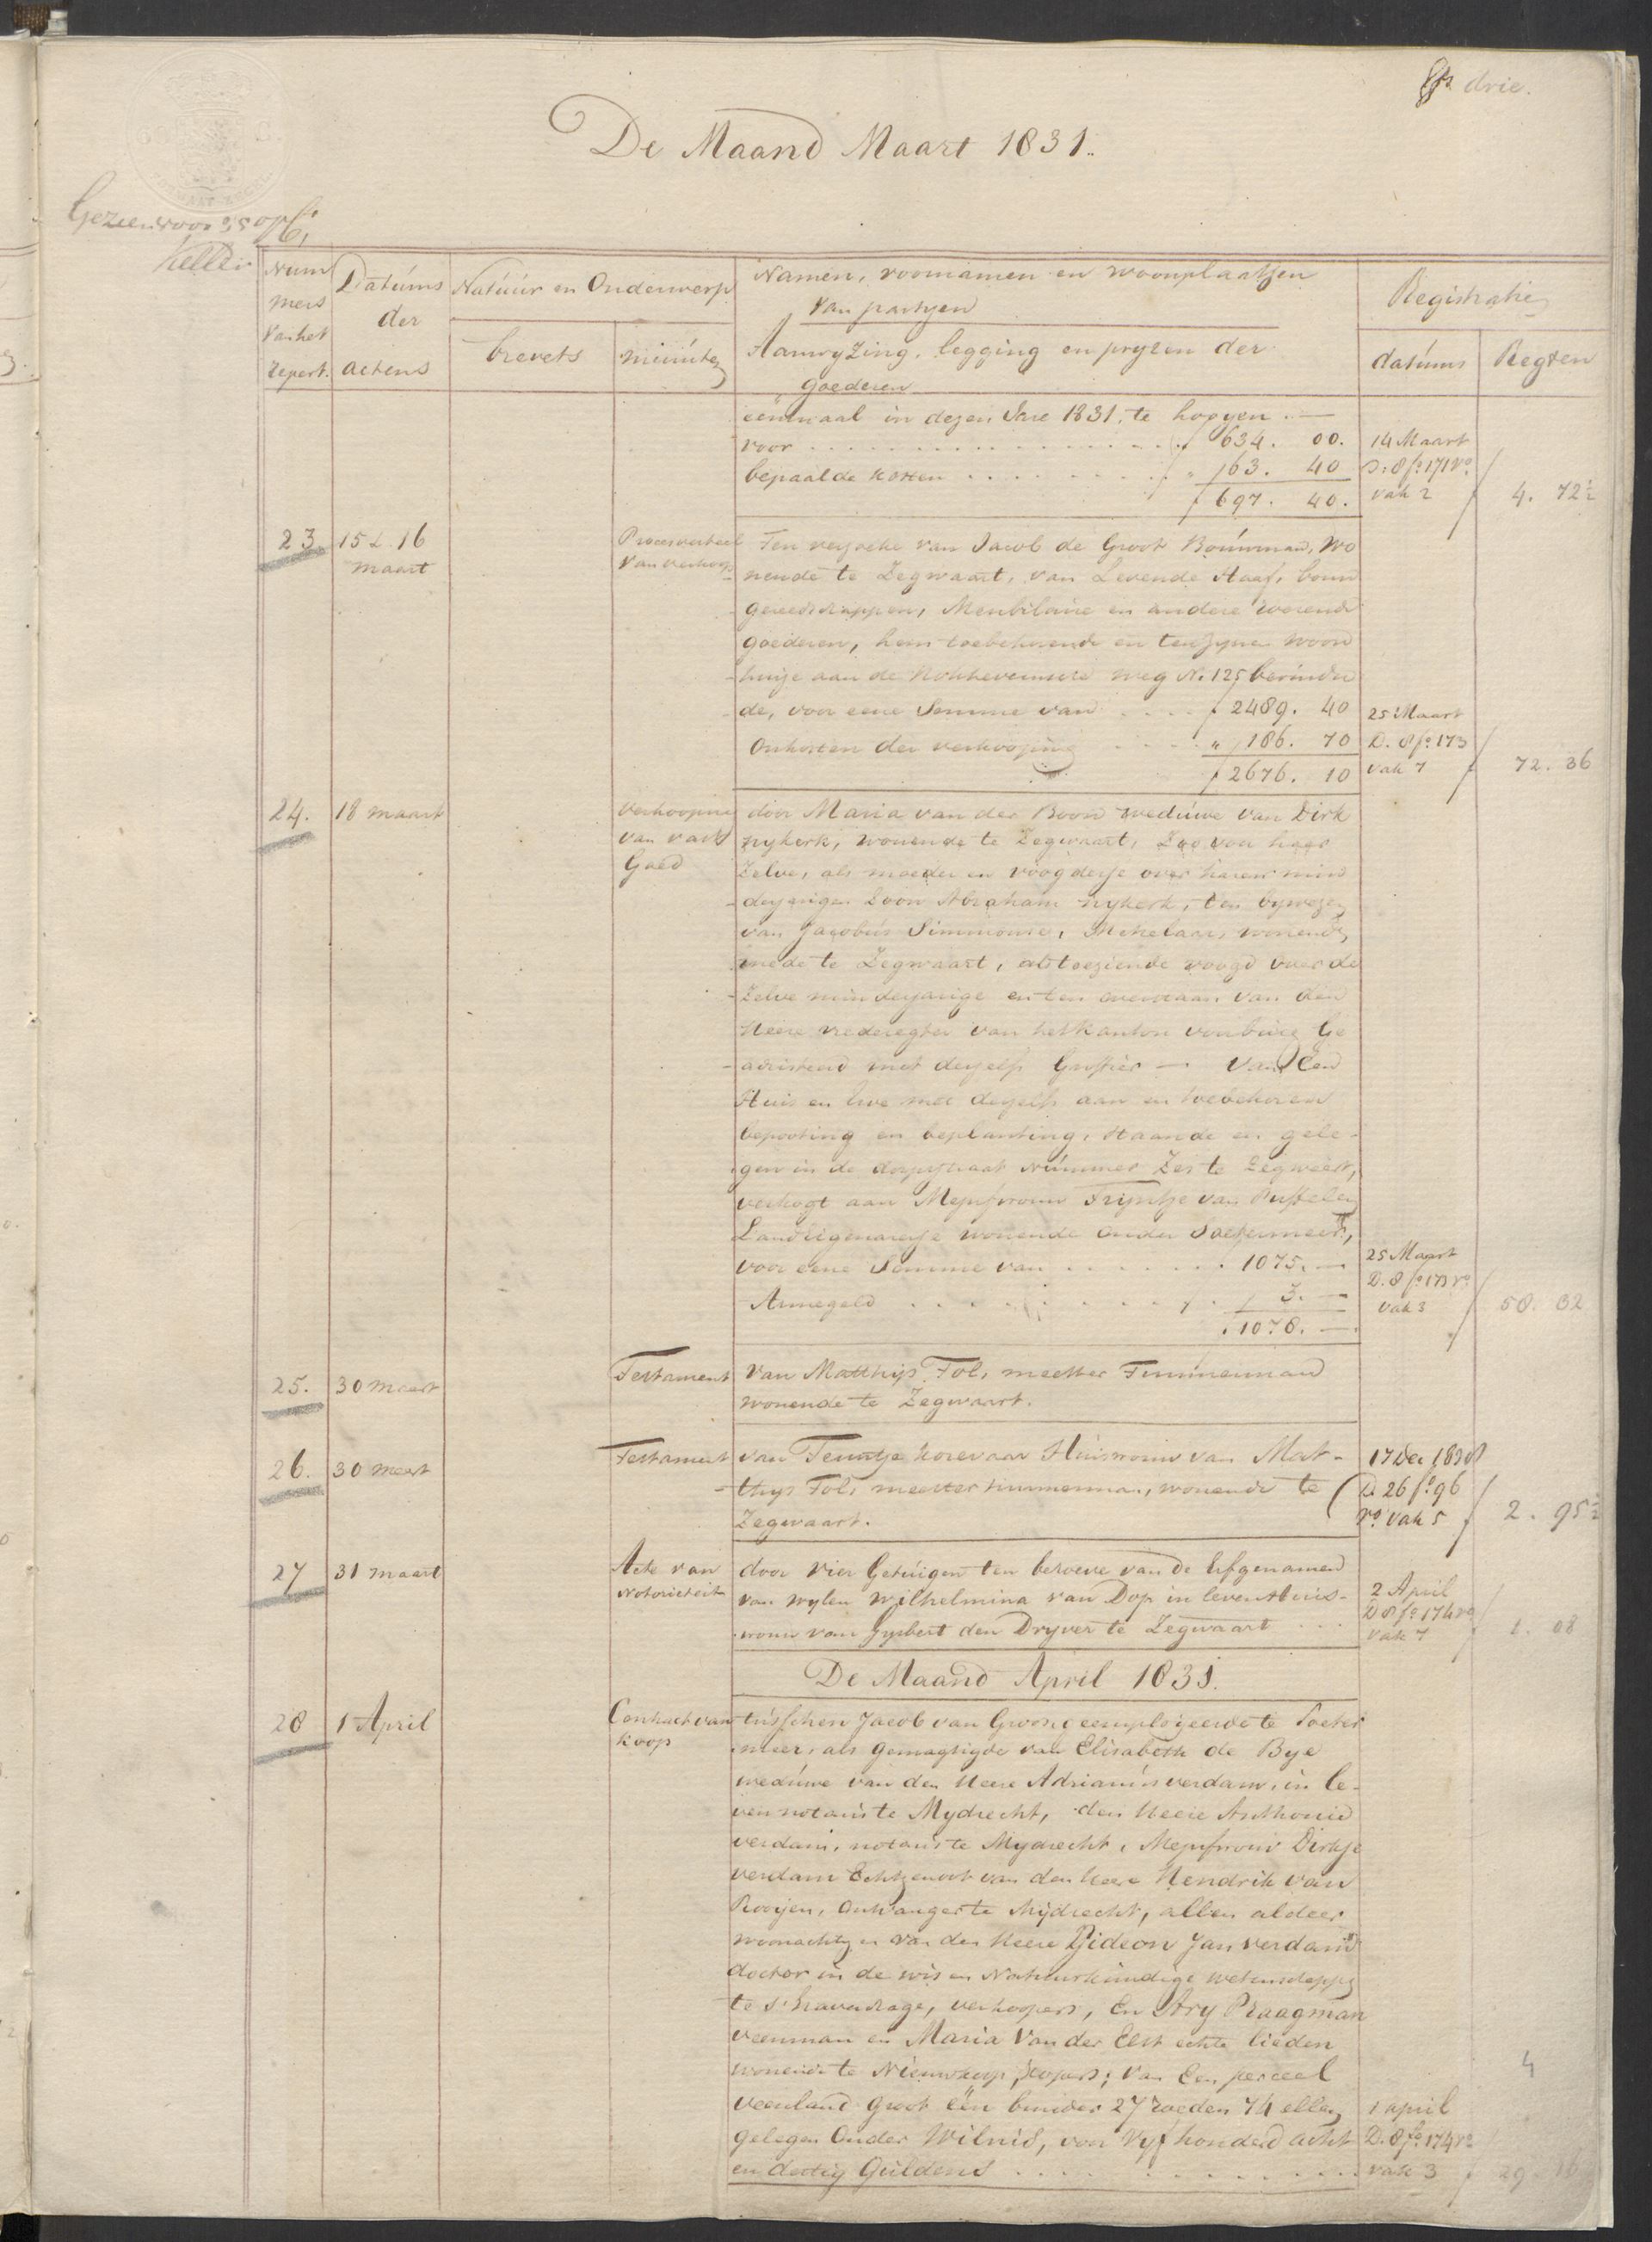 drie.
De Maand Maart 1831.
Gezien voor
Keller
Num
mers
van het
repert.
Datums
der
actens
Natuur en Onderwerp
brevets
minúten
Namen, voornamen en woonplaatsen
van partyen
Aanwyzing, legging en pryzen der
goederen
Registratie
datums
Regten
eenmaal in dezen Jare 1831. te
voor . . . . ƒ 634. 00.
bepaalde kosten . . . . " 63. 40
ƒ 697. 40.
14 Maart
D: 8 fo. 171 Vo.
vak 2
4. 72½
23
15 & 16
maart
Procesverbaal
van verkoop
Ten verzoeke van Jacob de Groot Bouwman, wo
nende te Zegwaart, van Levende Haaf, bouw
gereedschappen, Meubilaire en andere roerende
goederen, hem toebehoorende en ten zynen woon
huize aan de weg N. 125 bevinden
de, voor eene Somme van . . . . ƒ 2489. 40
Onkosten der verkooping . . . . " 186. 70
ƒ 2676. 10
25 Maart
D. 8 fo. 173
vak 7
72. 36
24.
18 maart
Verkooping
van vast
Goed
door Maria van der Boon weduwe van Dirk
nykerk, wonende te Zegwaart, Zoo voor haar
Zelve, als moeder en voogdesse over haren min
derjarigen Zoon Abraham nykerk, ten bywezen
van Jacobus Simmonse, Makelaar, wonende
mede te Zegwaart, als toeziende voogd over de
Zelve minderjarige en ten overstaan van den
Heere vrederegter van het kanton voorburg Ge
adsisteerd met deszelfs Griffier — Van Een
Huis en Erve met deszelfs aan en toebehoren
bepooting en beplanting, staande en gele-
gen in de dorpstraat Nummer Zes te Zegwaart,
verkogt aan Mejufvrouw Tryntje van Buffelen
Landeigenaresse wonende onder Soetermeer,
voor eene Somme van . . . . 1075. —
Armegeld . . . . ƒ 3. —
1078. —
25 Maart
D. 8 fo. 173 vo.
vak 3
58. 32
25.
30 maart
Testament
van Matthys Tol, meester Timmerman
wonende te Zegwaart.
26.
30 maart
Testament
van Teuntje Korevaar Huisvrouw van Mat-
thys Tol, meester timmerman, wonende te
Zegwaart.
17 Dec 1838
D. 26 fo. 96
vo. vak 5
2. 95½
27
31 maart
Acte van
Notorieteit
door vier Getuigen ten behoeve van de Erfgenamen
van wylen Wilhelmina van Dop in leven Huis-
vrouw van Gysbert den Dryver te Zegwaart . . .
2 April
D 8 fo. 174 vo
vak 7
1. 08
De Maand April 1831.
28
1 April
Contract van
koop
tusschen Jacob van Groos geemployeerde te Soeter
meer, als gemagtigde van Elisabeth de Bye
weduwe van den Heere Adrianus verdam, in le-
ven notaris te Mydrecht, den Heere Anthonie
verdam, notaris te Mydrecht, Mejufvrouw Dirkje
verdam Echtgenoot van den heere Hendrik van
Rooijen, Ontvanger te Mijdrecht, allen aldaar
woonachtig en van den Heere Gideon Jan verdam
doctor in de wis en Natuurkundige wetenschappen
te s'Gravenhage, verkoopers, En Ary Plaagman
veenman en Maria van der Elst echte lieden
wonende te Nieuwkoop, koopers; van Een perceel
veenland groot één bunder 27 roeden 74 ellen
gelegen Onder Wilnis, voor Vyf honderd acht
en dertig Guldens . . . .
1 april
D. 8 fo. 174 vo
vak 3
4
29.